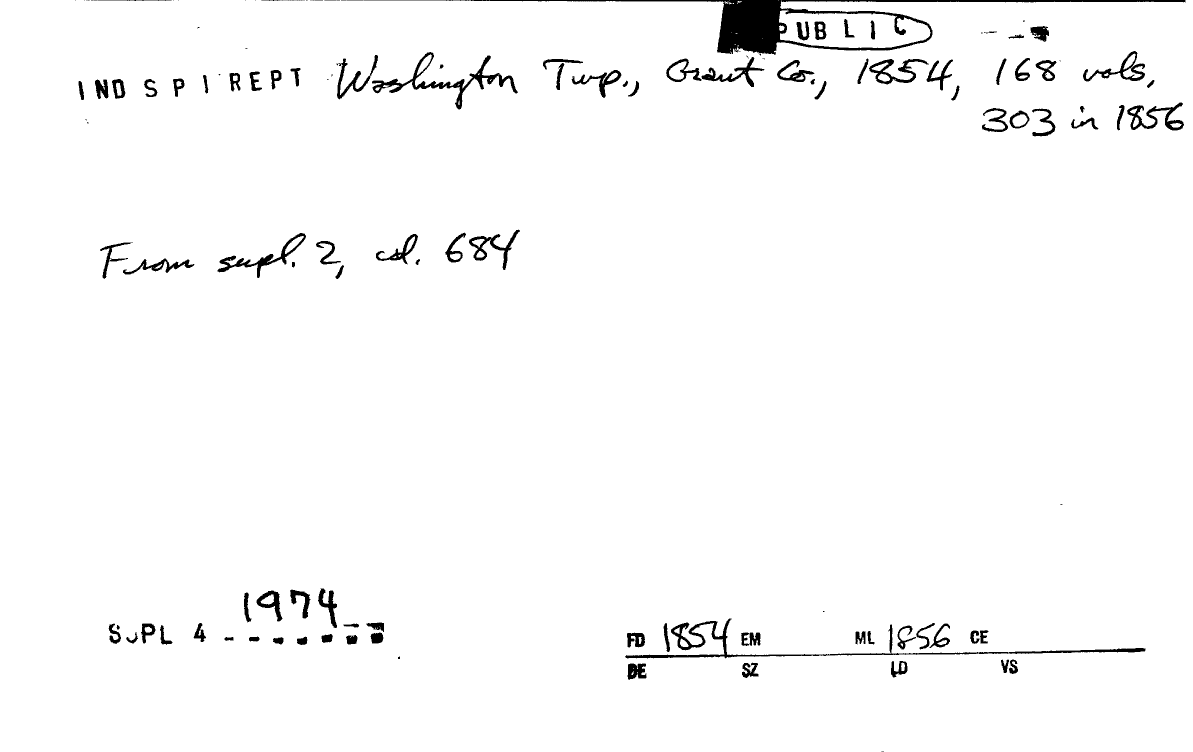 PUBLIC
IND SPI REPT Washington Twp., Grant Co., 1854, 168 vols,
303 in 1856
From supl. 2, col. 684
1974
SUPL 4
FD 1854 EM ML 1856 CE
DE SZ LD VS